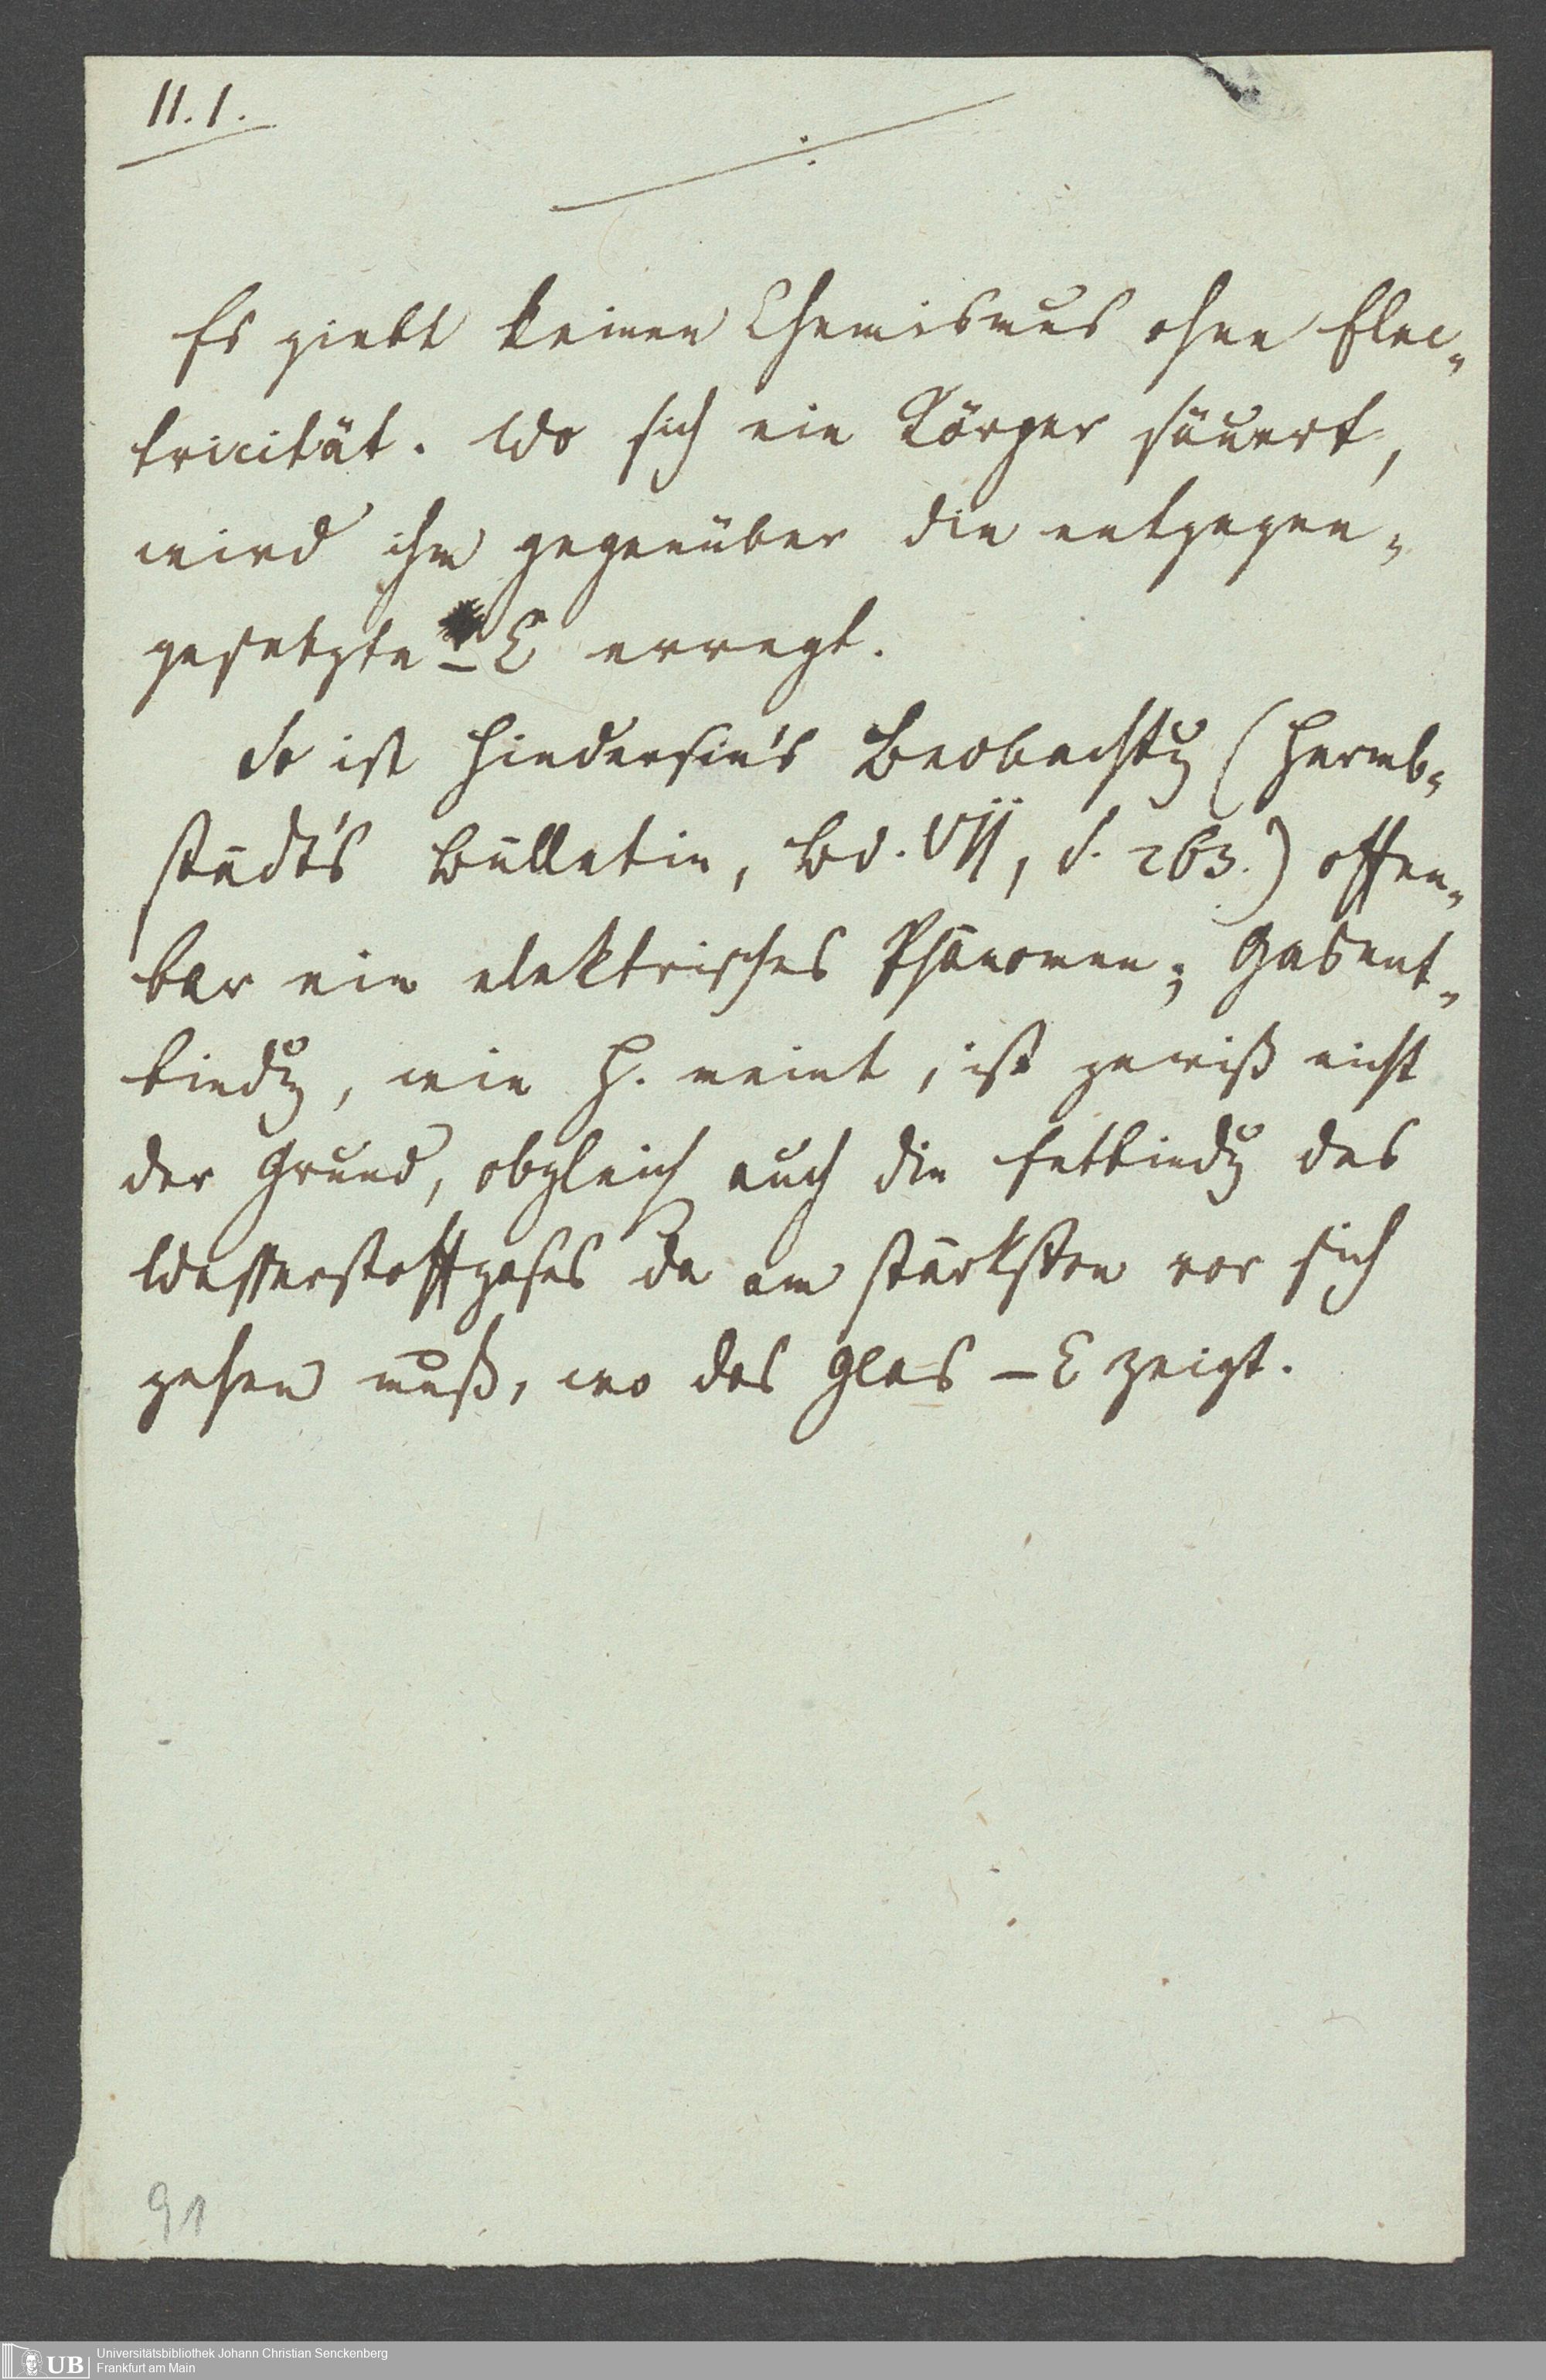 II.1.
Es giebt keinen Chemismus ohne Elec-
tricität. Wo sich ein Körper säuert,
wird ihm gegenüber die entgegen-
gesetzte – E erregt.
So ist Hindersin's Beobachtg (Hermb-
städt's Bülletin, Bd. VII, S. 263.) offen-
bar ein elektrisches Phänomen; Gasent-
bindg, wie H. meint, ist gewiß nicht
der Grund, obgleich auch die Entbindg des
Wasserstoffgases da am stärksten vor sich
gehen muß, wo das Glas – E zeigt.
91
UB
Universitätsbibliothek Johann Christian Senckenberg
Frankfurt am Main